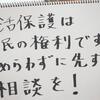 活保護は
民の権利です
めらわずに先ず
相談を!